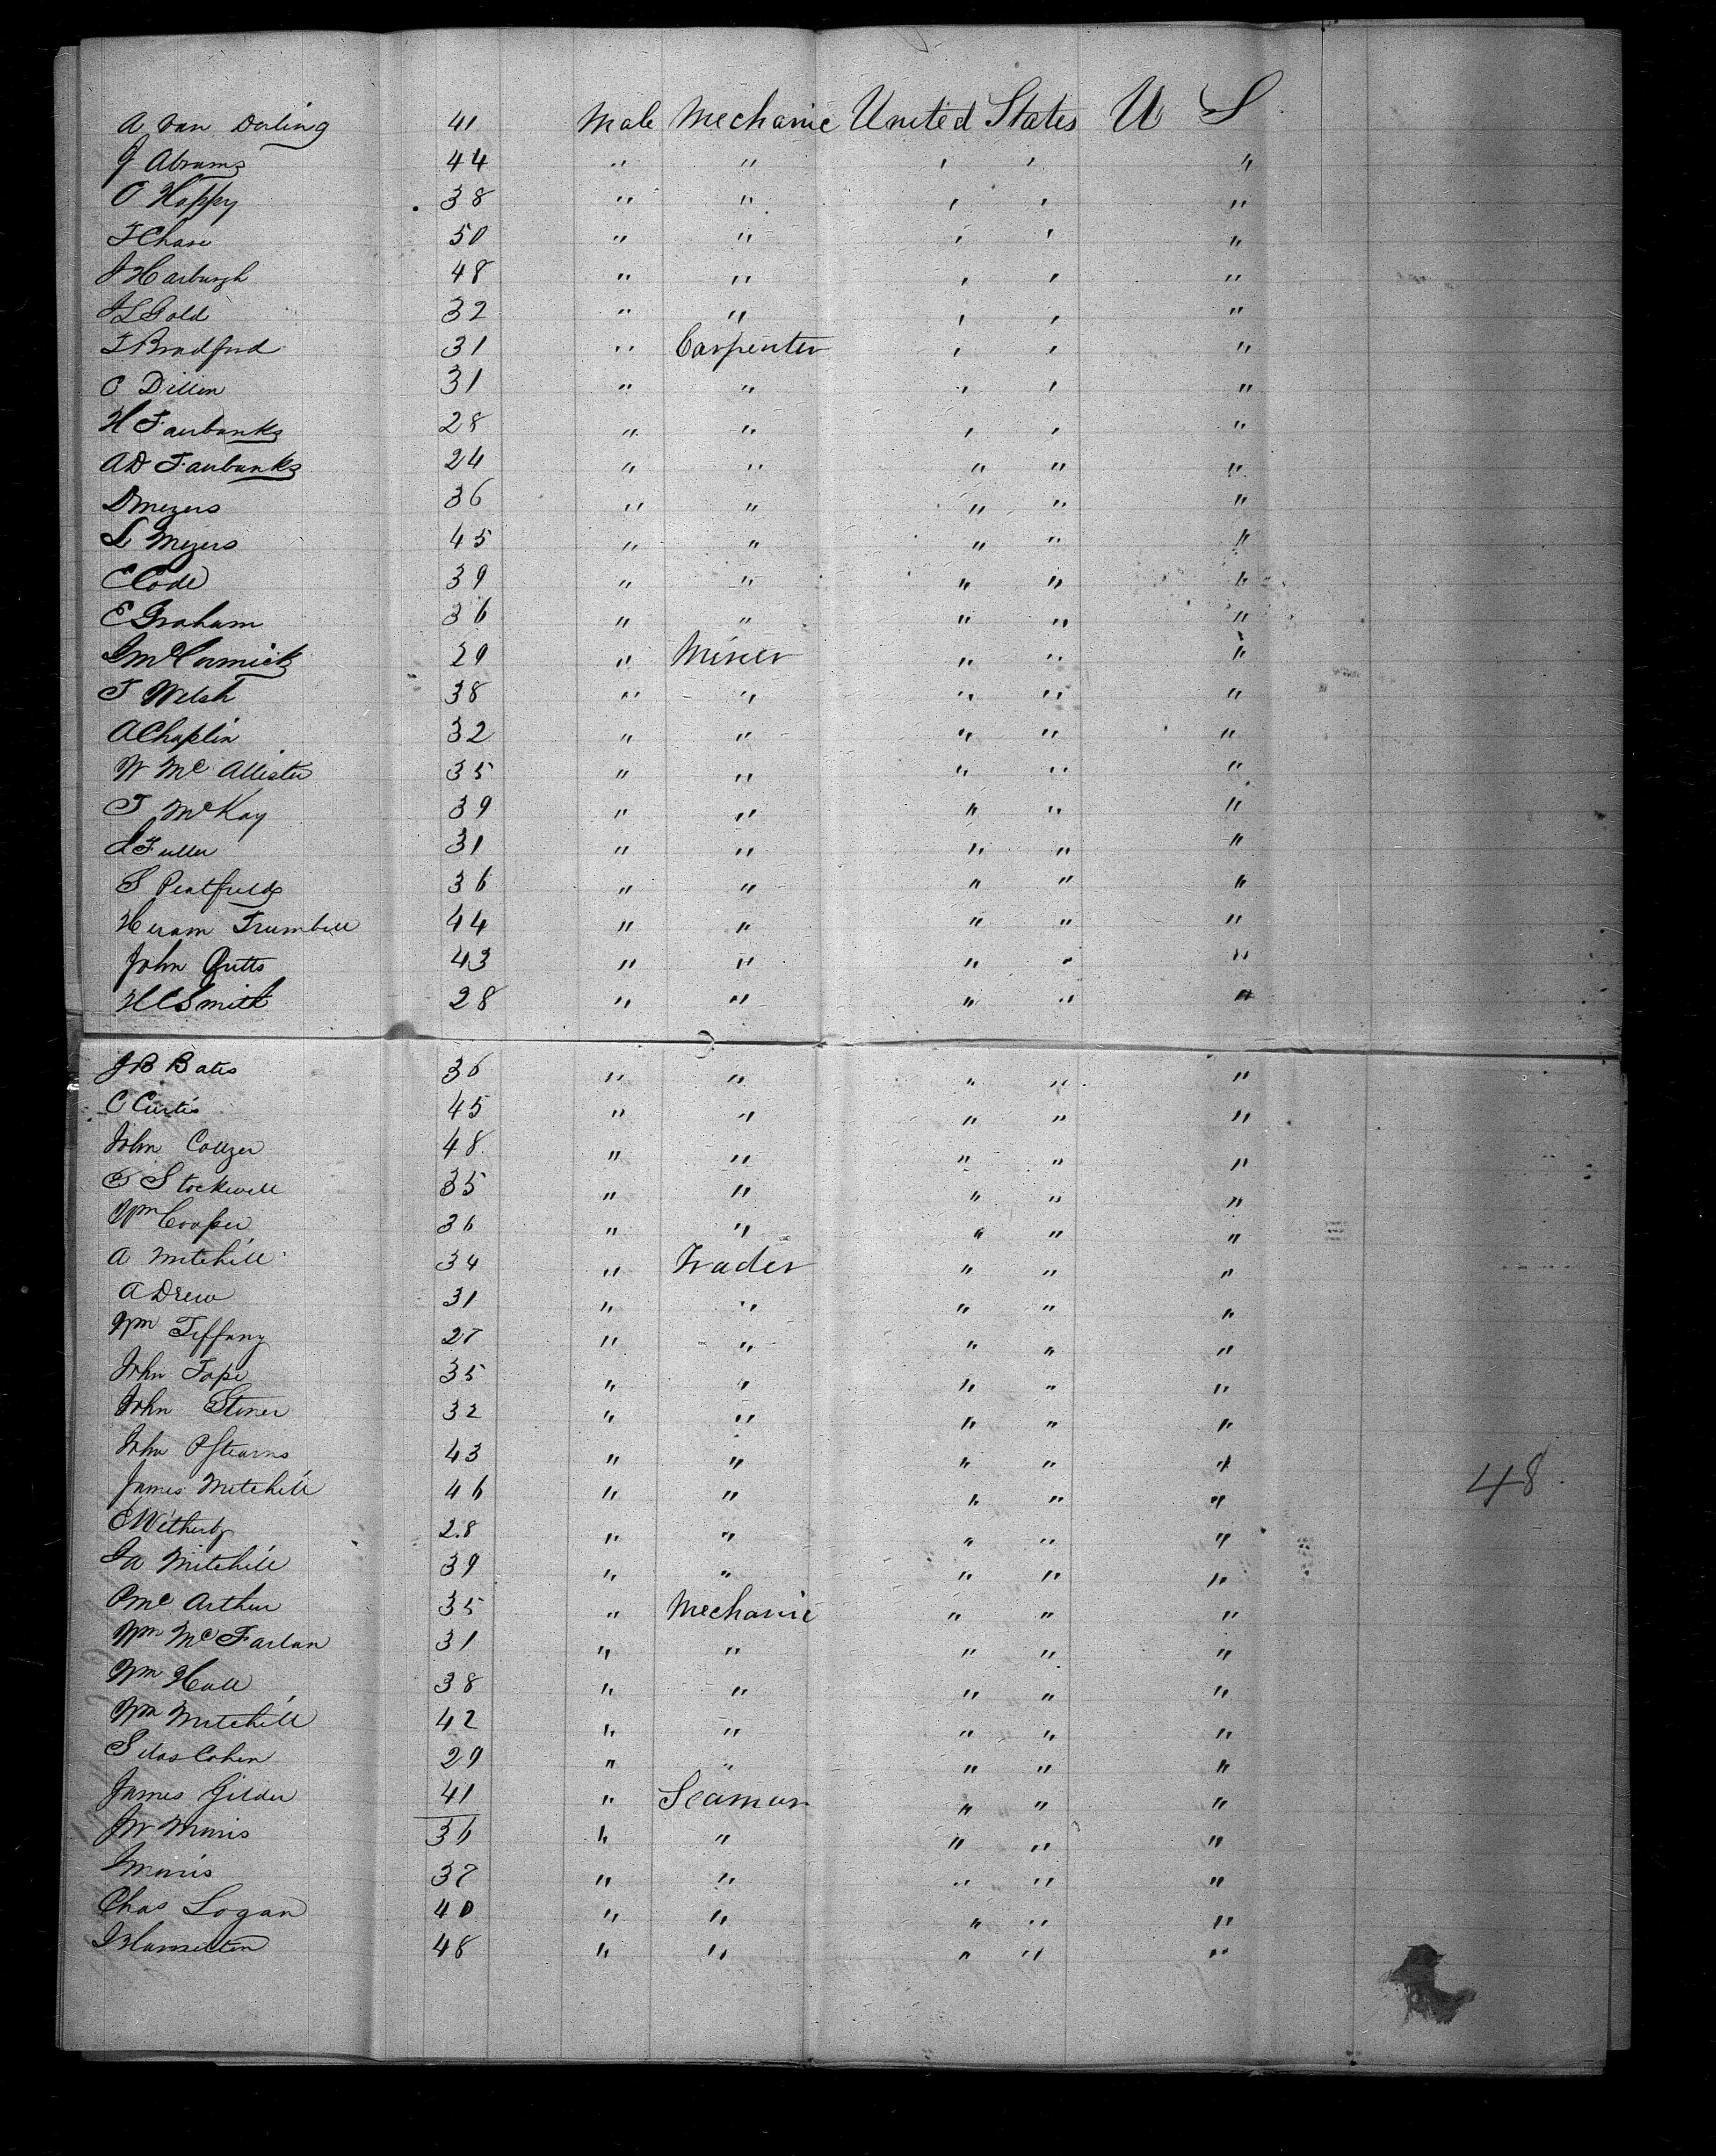 A Van Derling 41 Male Mechanic United States U S
J Abrams 44 " " " " "
O Hoppy 38 " " " " "
T Chase 50 " " " " "
J Harburgh 48 " " " " "
J L Gold 32 " " " " "
T Bradford 31 " Carpenter " " "
C Dillon 31 " " " " "
H Fairbanks 28 " " " " "
A D Fairbanks 24 " " " " "
D Meyers 36 " " " " "
L Meyers 45 " " " " "
C Code 39 " " " " "
E Graham 36 " " " " "
J McCormick 29 " Miner " " "
T Welsh 38 " " " " "
A Chaplin 32 " " " " "
W Mc Allister 35 " " " " "
T McKay 39 " " " " "
J Fuller 31 " " " " "
S Peatfield 36 " " " " "
Hiram Trumbull 44 " " " " "
John 43 " " " " "
H C Smith 28 " " " " "
J B Bates 36 " " " " "
C Curtis 45 " " " " "
John Collyer 48 " " " " "
Stockwell 35 " " " " "
Wm Cooper 36 " " " " "
A Mitchill 34 " Trader " " "
A Drew 31 " " " " "
Wm Tiffany 27 " " " " "
John Tope 35 " " " " "
John Stoner 32 " " " " "
John P Stearns 43 " " " " "
James Mitchill 46 " " " " " 48
E Witherby 28 " " " " "
J A Mitchill 39 " " " " "
P Mc Arthur 35 " Mechanic " " "
Wm Mc Farlan 31 " " " " "
Wm Hall 38 " " " " "
Wm Mitchill 42 " " " " "
Silas Cohen 29 " " " " "
James Gilder 41 " Seaman " " "
J W Morris 36 " " " " "
J Morris 37 " " " " "
Chas Logan 40 " " " " "
48 " " " " "